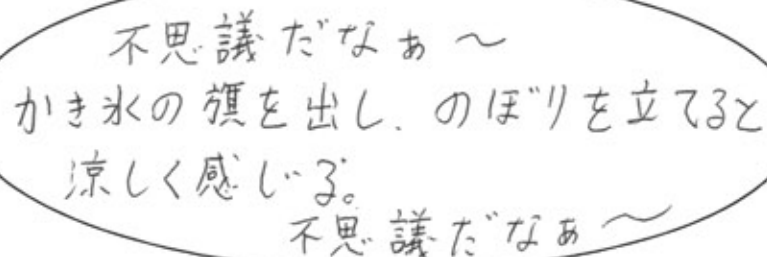 不思議だなぁ～
かき氷の旗を出し、のぼりを立てると
涼しく感じる。
不思議だなぁ～